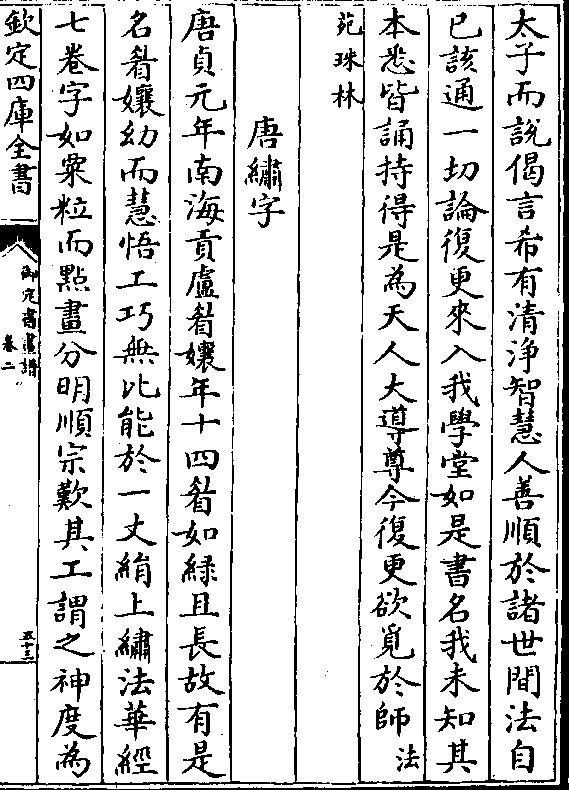 太子而說偈言希有清淨智慧人善順於諸世間法自
已該通一切論復更來入我學堂如是書名我未知其
本悉皆誦持得是為天人大導尊今復更欲覓於師法
苑珠林
唐繡字
唐貞元年南海貢盧眉孃年十四眉如緑且長故有是
名眉孃幼而慧悟工巧無比能於一丈絹上繡法華經
七卷字如粟粒而點畫分明順宗歎其工謂之神度為
欽定四庫全書
御定書畫譜
卷二
五十三